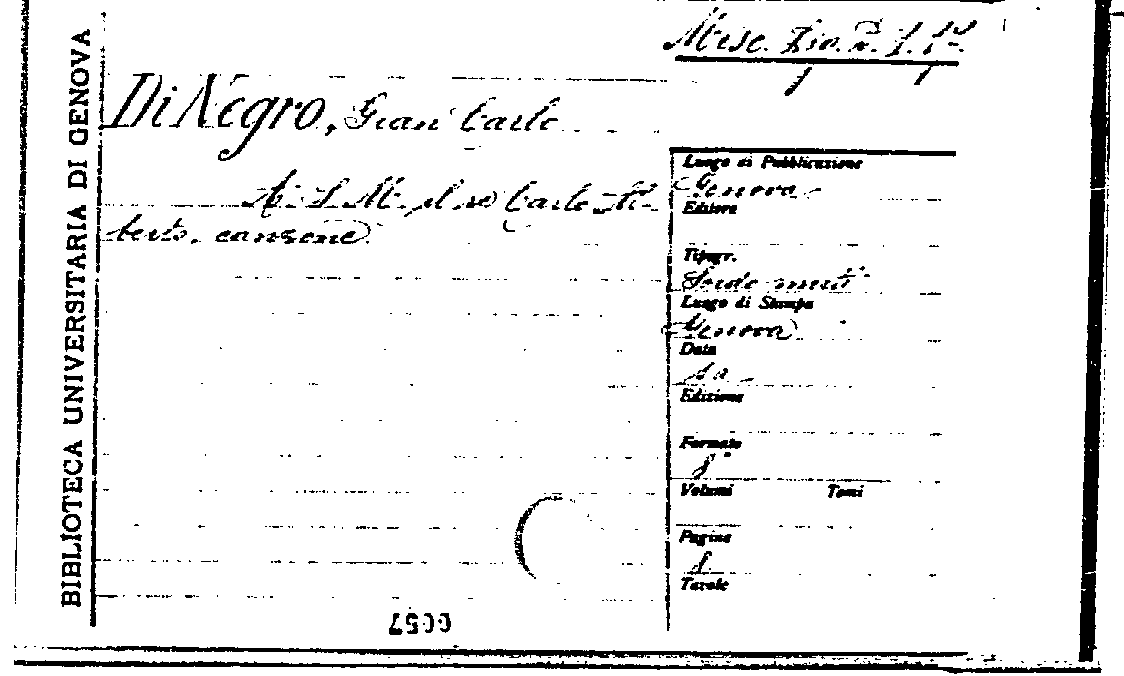 BIBLIOTECA UNIVERSITARIA DI GENOVA
Misc.
Di Negro, Gian Carlo
A. S. M. il re Carlo Al-
berto, canzone.
Luogo di Pubblicazione
Genova
Editore
Tipogr.
Sordo muti
Luogo di Stampa
Genova
Data
s. a.
Edizione
Formato
8°
Volumi Tomi
Pagine
8
Tavole
0057